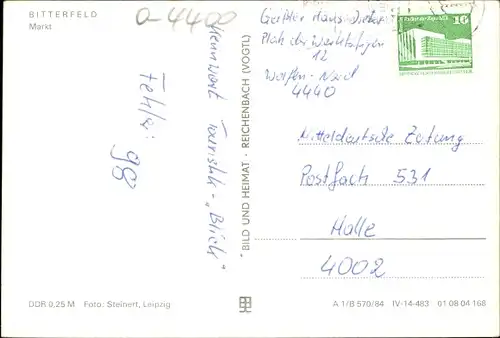 BITTERFELD
Markt
0-4400
Geißler Hans-Dieter
Platz der Werktätigen
12
Wolfen-Nord
4440
10
Kennwort Touristik-"Blick"
Fehler: 98
Mitteldeutsche Zeitung
Postfach 531
Halle
4002
BILD UND HEIMAT · REICHENBACH (VOGTL)
DDR 0,25 M Foto: Steinert, Leipzig
A 1/B 570/84 IV-14-483 01 08 04 168